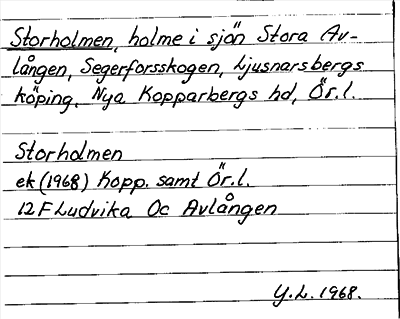 Storholmen, holme i sjön Stora Av-
lången, Segerforsskogen, Ljusnarsbergs
köping, Nya Kopparbergs hd, Ör.l.
Storholmen
ek (1968) Kopp. samt Ör.l.
12 F Ludvika Oc Avlången
Y.L. 1968.